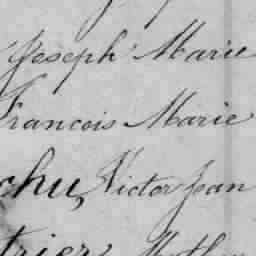 Joseph Marie
François Marie
chu, Victor Jean
trier